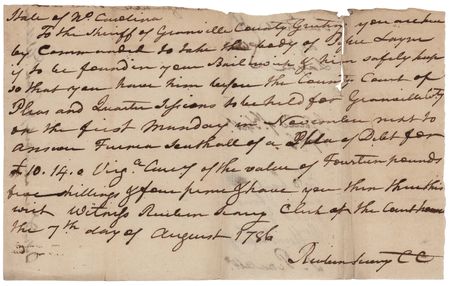 State of No. Carolina
To the Sheriff of Granville County Greeting you are here
by Commanded to take the body of Layne
if to be found in your Bailiwick & him safely keep
so that you have him before the County Court of
Pleas and Quarter Sessions to be held for Granville Cty
on the first Munday in November next to
answer Furnea Southall of a plea of Debt for
£10.14.0 Virga. Curcy of the value of Fourteen pounds
five shillings & four pence & have you then there this
writ Witness Reuben Searcy Clerk of the Court
the 7th day of August 1786
Reuben Searcy CC